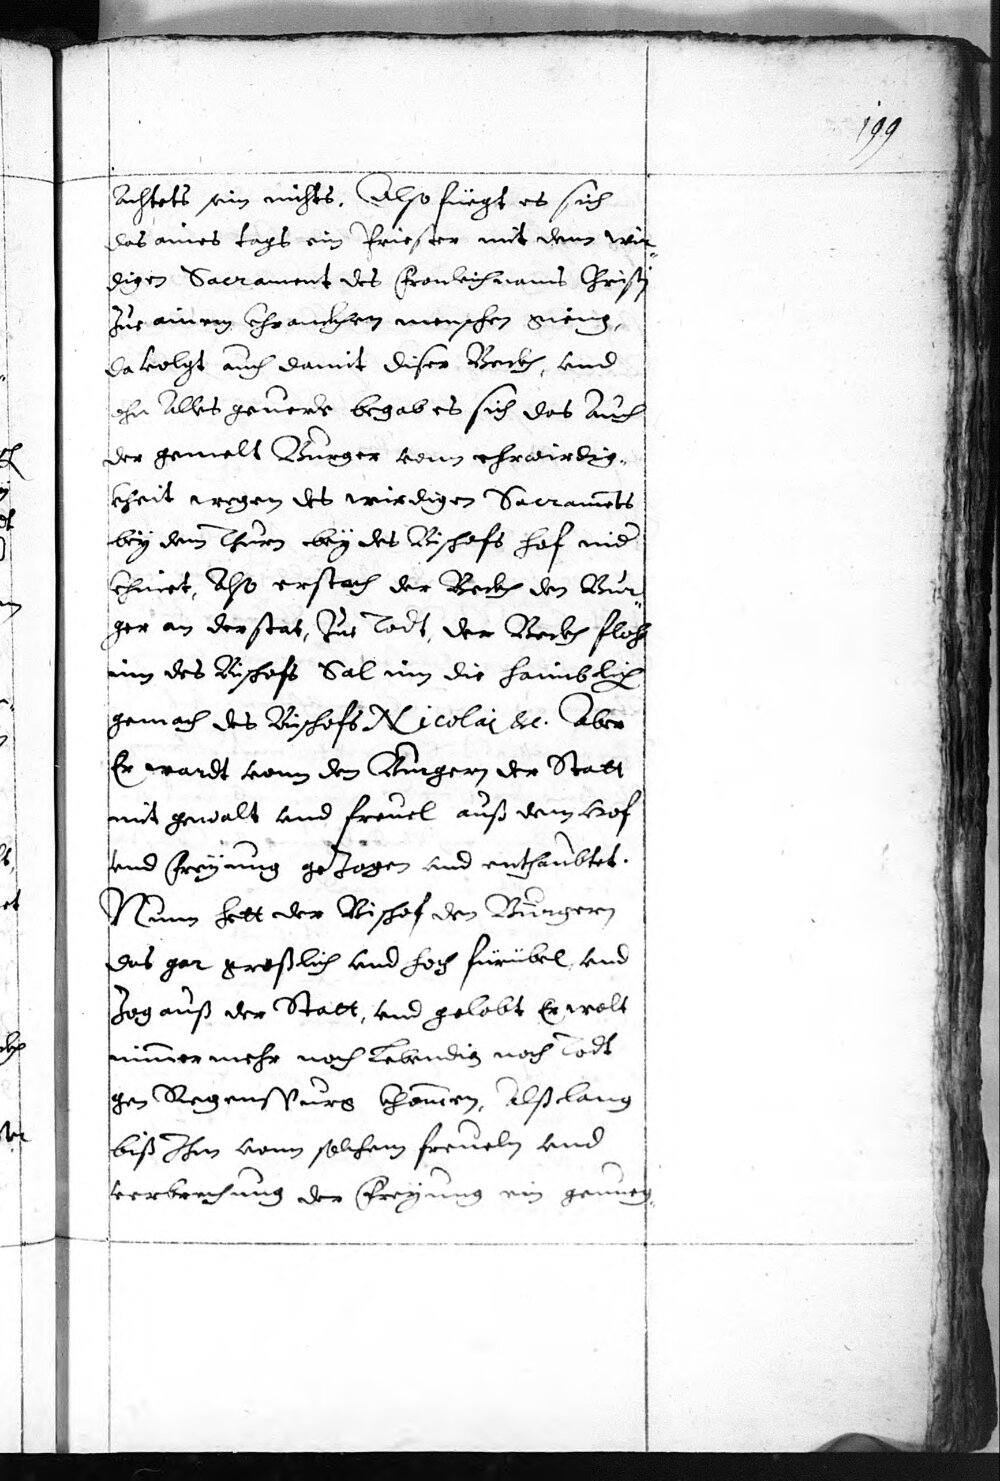 199
Achtets ein nichts. Also füegt es sich
das aines tags ein Priester mit dem wir-
digen Sacrament des Fronleichnams Christj
Zue ainem Chranckhen menschen gieng,
da volgt auch damit diser Beckh, vnd
ohn Alles geuerde begab es sich das Auch
der gemelt Burger vonn ehrwirdig-
kheit wegen des wirdigen Sacraments
bey dem Thurn bey des Bischofs hof nid
Chniet, Also erstach der Beckh den Bur-
ger an der stat, Zue Todt, der Beckh flohe
inn des Bischofs Sal inn die haimblich
gemach des Bischofs Nicolaj &c. Aber
Er wardt vonn den Burgern der Statt
mit gewalt vnd freuel auß dem Hof
vnd Freyung geZogen vnd enthaubtet.
Nunn hett der Bischof den Burgern
das gar greßlich vnd hoch fürübel, vnd
Zog auß der Statt, vnd gelobt Er wolt
nimmermehr noch Lebendig noch Todt
gen Regenspurg Chomen, Alß lang
biß Ihm vonn solchem freueln vnd
verbrechung der Freyung ein genueg